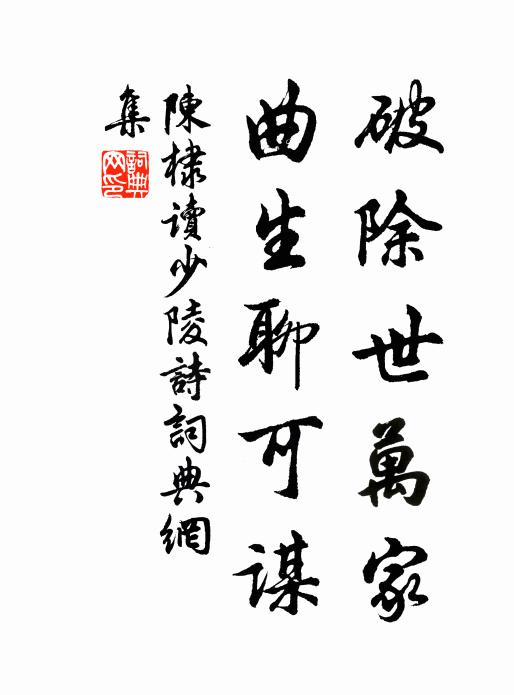 破除世萬家
曲生聊可謀
陳棣讀少陵詩詞典網
集
詞典網印